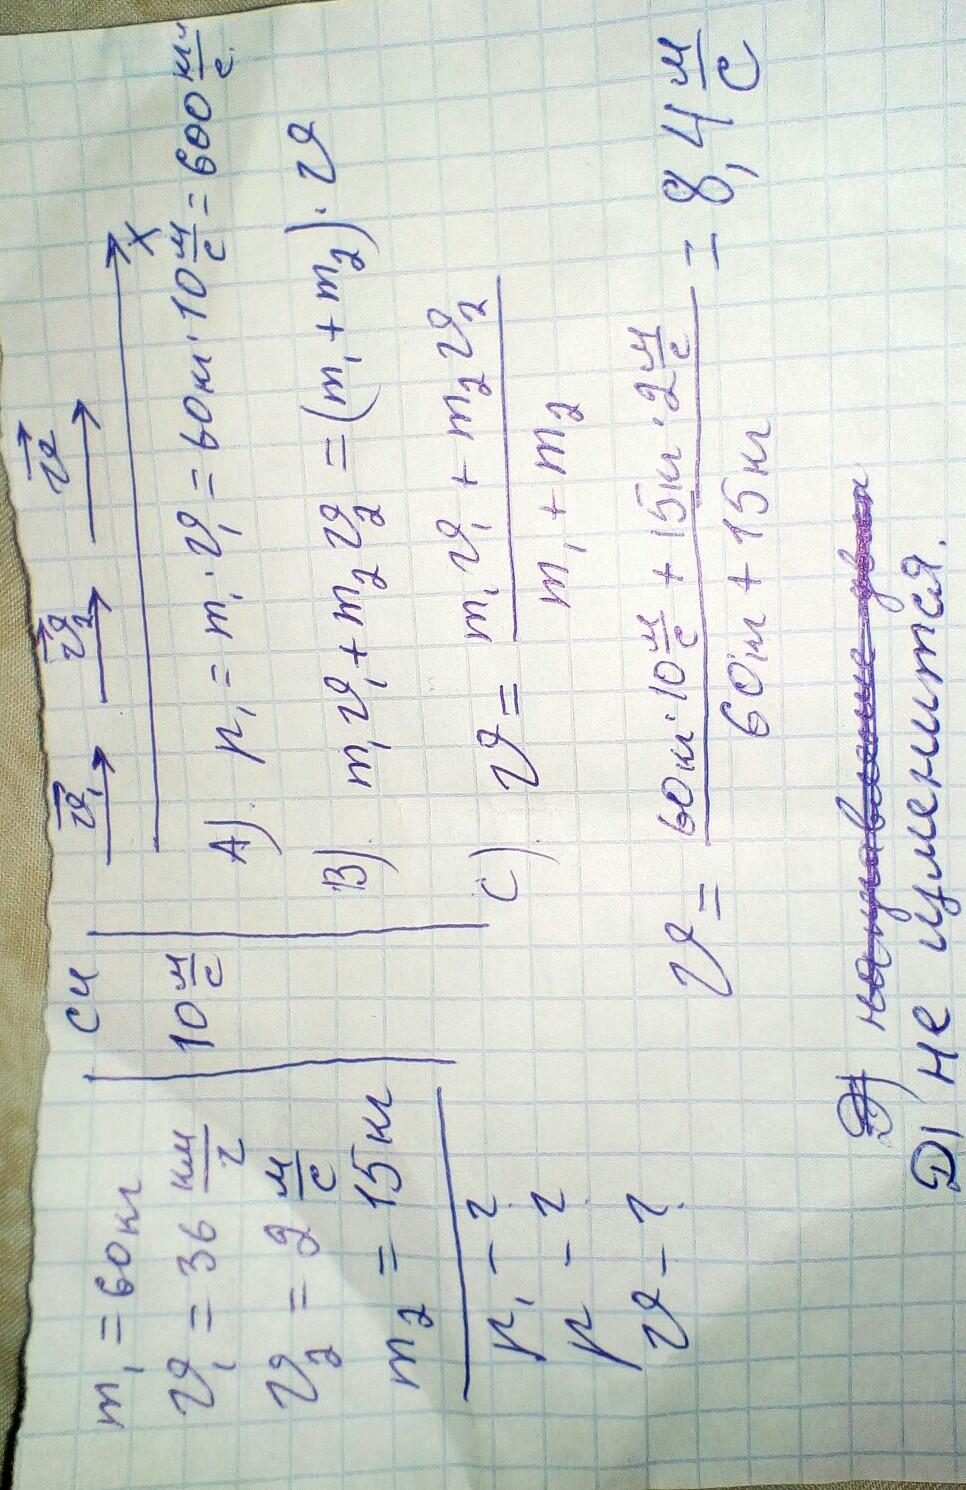 m₁ = 60кг
СИ
v₁ = 36 км/ч
10 м/с
v₂ = 2 м/с
m₂ = 15 кг
p₁ - ?
p - ?
v - ?
v⃗₁ v⃗₂ v⃗
X
A) p₁ = m₁ · v₁ = 60кг · 10 м/с = 600 кгм/с
B) m₁v₁ + m₂v₂ = (m₁ + m₂) · v
C) v = (m₁v₁ + m₂v₂)/(m₁ + m₂)
v = (60кг · 10 м/с + 15кг · 2 м/с)/(60кг + 15кг) = 8,4 м/с
D) не изменится.